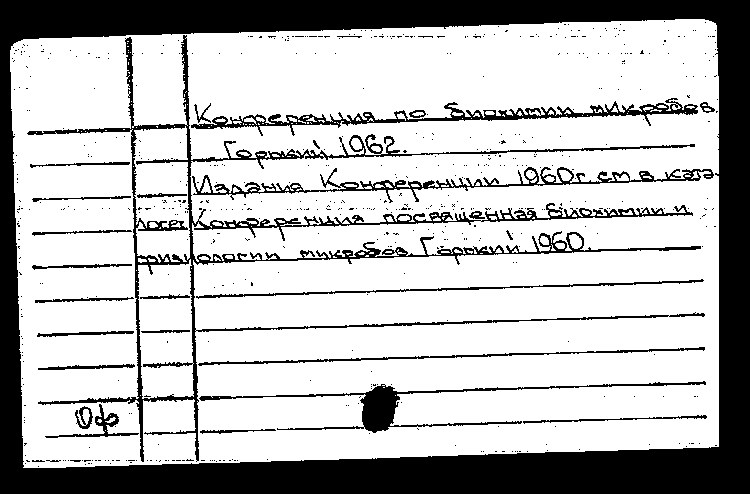 Конференция по биохимии микробов.
Горький 1962.
Издания Конференции 1960г см. в ката-
логе: Конференция посвященная биохимии и
физиологии микробов. Горький 1960.
Оф